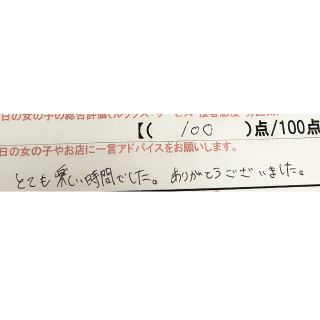 日の女の子の総合評価(ルックス・サービス・接客態度・雰囲気)
【( 100 )点/100点
日の女の子やお店に一言アドバイスをお願いします。
とても楽しい時間でした。ありがとうございました。